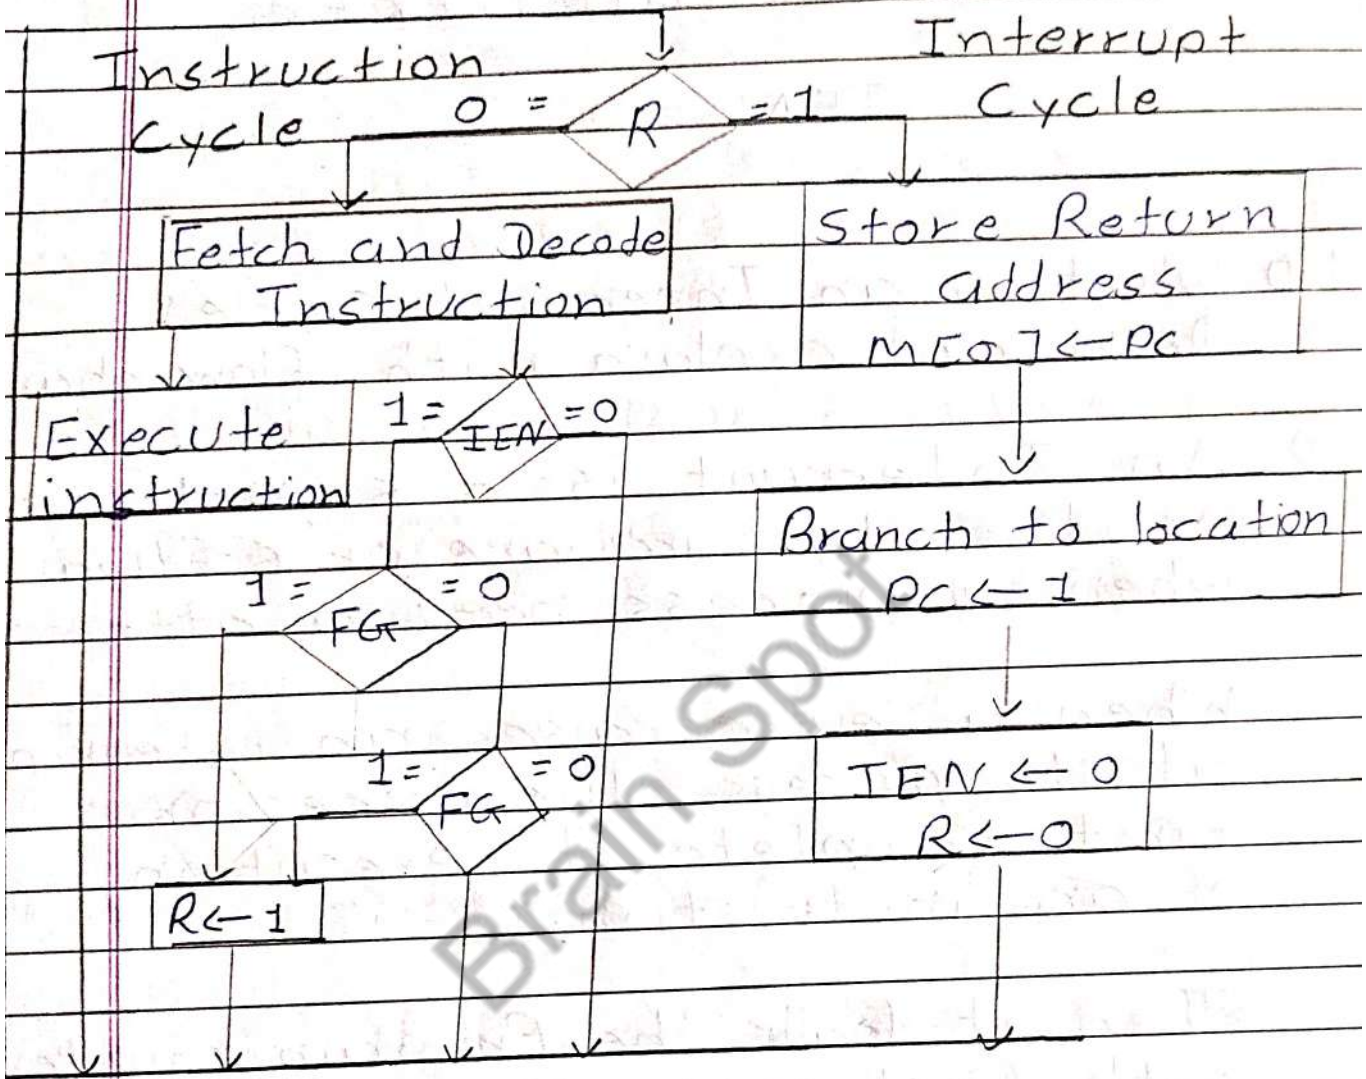 Instruction
Cycle
Interrupt
Cycle
0 =
R
= 1
Fetch and Decode
Instruction
Store Return
address
M[0]←PC
Execute
instruction
1 =
IEN
= 0
Branch to location
PC←1
1 =
FG
= 0
1 =
FG
= 0
IEN ← 0
R←0
R←1
Brain Spot